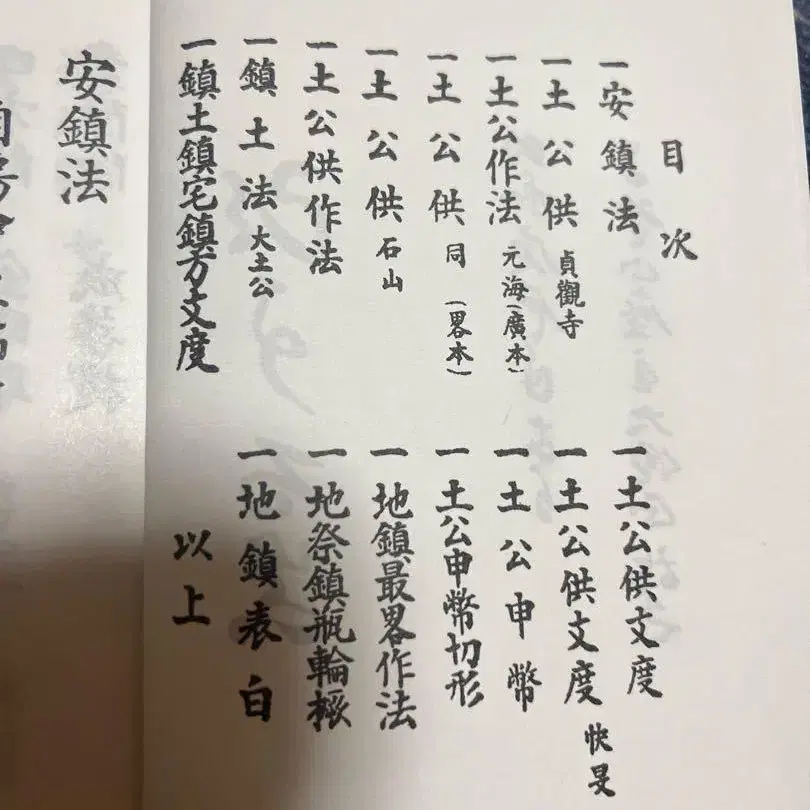 目次
一安鎮法
一土公供 貞觀寺
一土公作法 元海(廣本)
一土公供 同 (畧本)
一土公供 石山
一土公供作法
一鎮土法 大土公
一鎮土鎮宅鎮方支度
一土公供支度
一土公供支度 快旻
一土公申幣
一土公申幣切形
一地鎮最畧作法
一地祭鎮瓶輪橛
一地鎮表白
以上
安鎮法